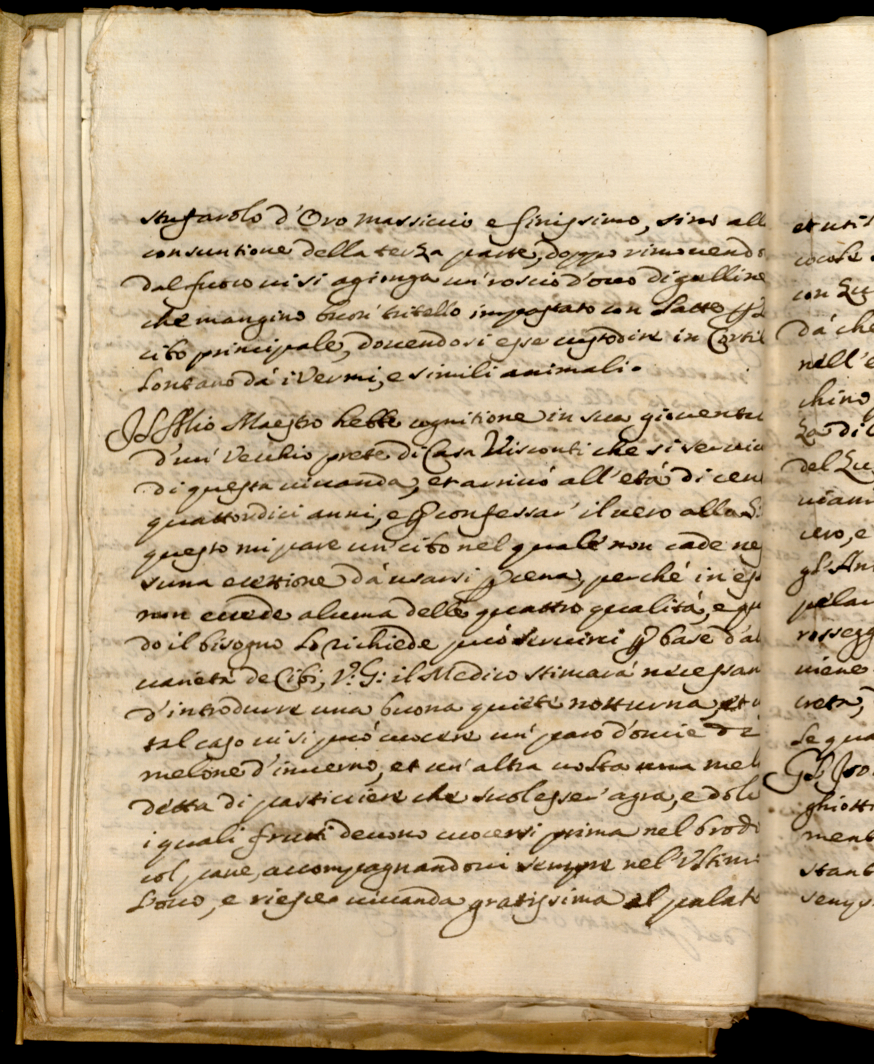 stufarolo d'Oro massiccio e finissimo, sino all
consuntione della terza parte, doppo rimovend
dal fuoco vi si agionga un' roscio d'ovo di galline
che mangino buon' tritello impastato con latte
cibo principale, dovendosi esse custodire in Cortil
Lontano dá i Vermi, e simili animali.
Maestro hebbe cognitione in sua gioventu
d'un' Vecchio prete di Casa Visconti che si servia
di questa vivanda, et arrivó all'etá di cen
quattordici anni, e confessar' il vero alla
questo mi pare un' cibo nel quale non cade nes
suna ecettione dá usarsi cena, perché in es
non eccede alcuna delle quattro qualitá, e
do il bisogno lo richiede puó servirci base d'al
varietá de Cibi, V. G: il Medico stimará necessar
d'introdurre una buona quiete notturna, et
tal caso vi si puó cuocere un' paro d'oncie
melone d'inverno, et un' altra volta una mel
detta di pasticciere che suol esser' agra, e dol
i quali frutti devono cuocersi prima nel brod
col pane, accompagnandovi sempre nel' Ultim
Loco, e riesce vivanda gratissima al palat
et util
con
dá che
nell'
chino
di
del
cero, e
pelar
rossegg
viene
creta,
se qua
ghiott
ment
stant